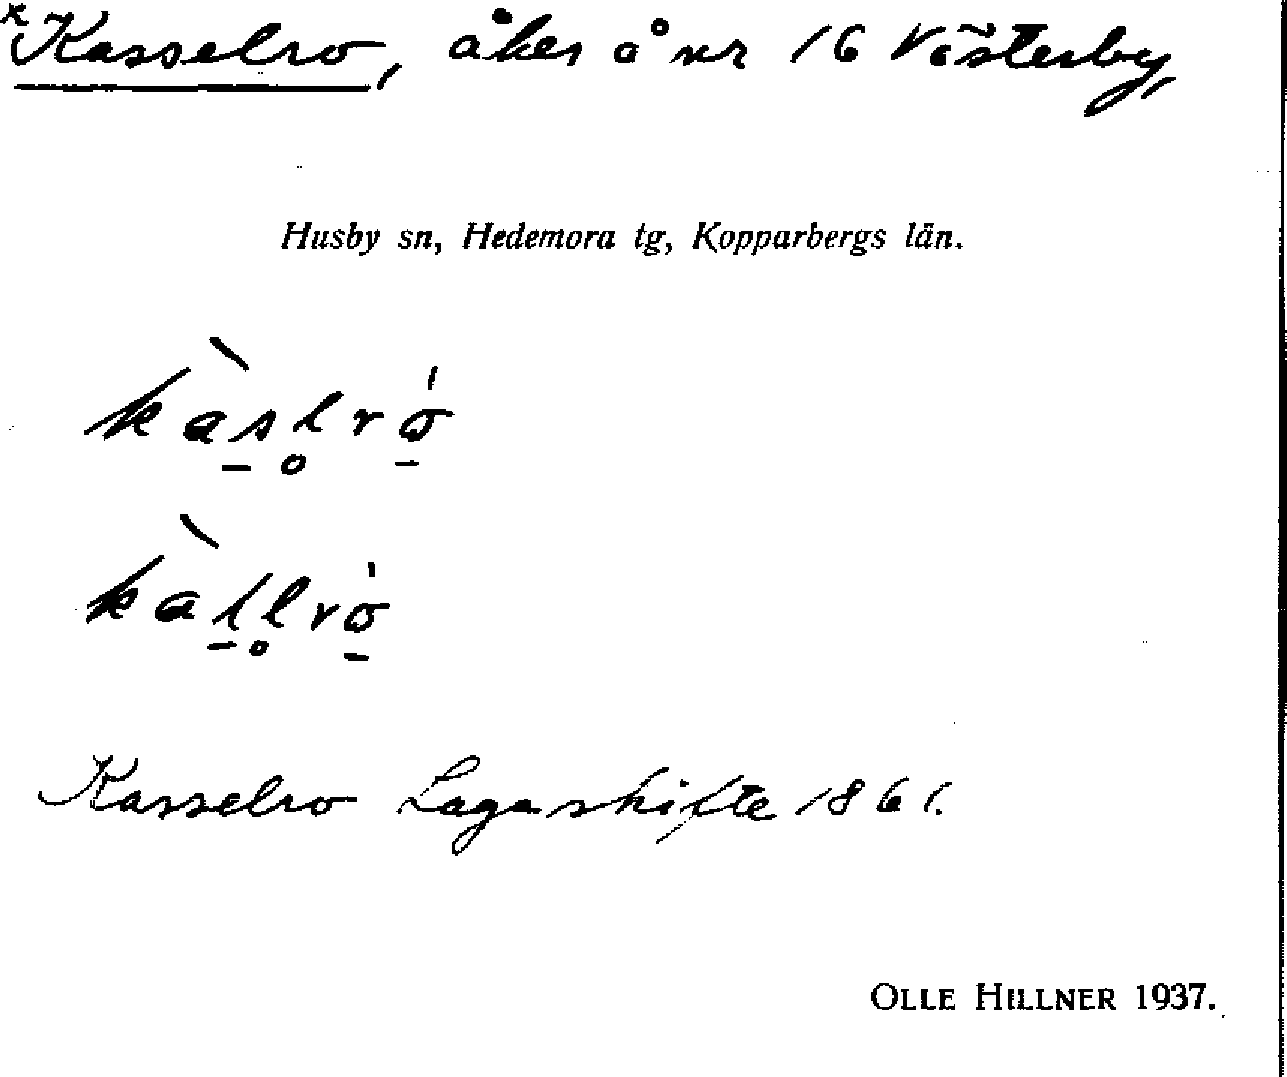 *Kasselro, åker å nr 16 Västerby,
Husby sn, Hedemora tg, Kopparbergs län.
Kasselro Lagaskifte 1861.
OLLE HILLNER 1937.